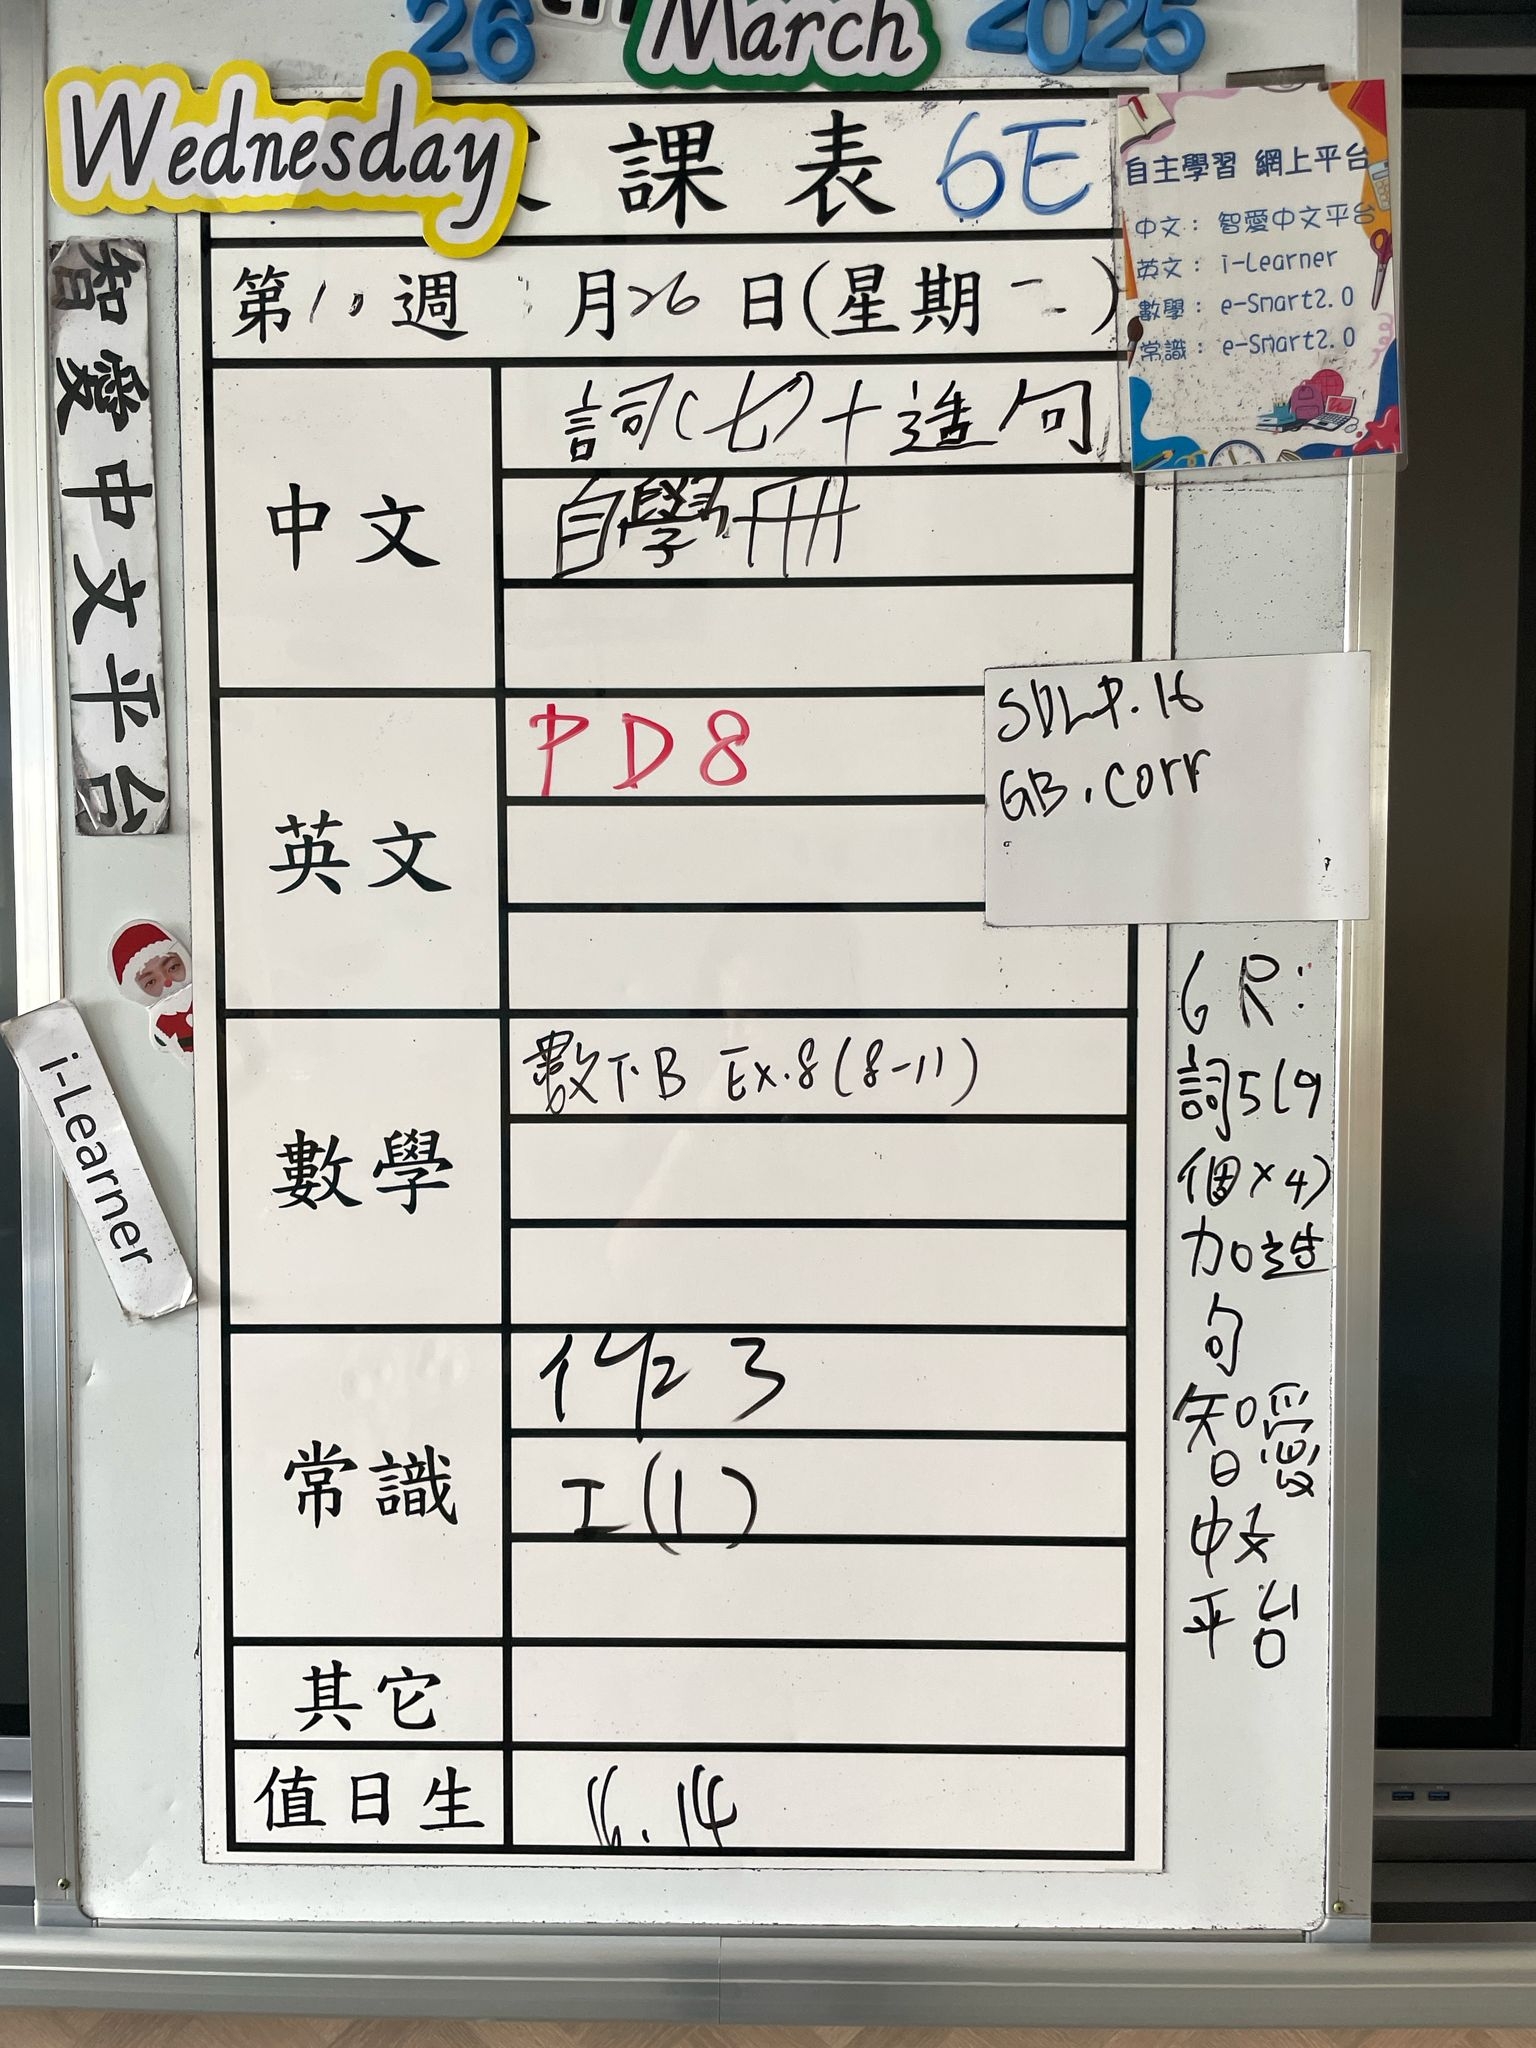 26th March 2025
Wednesday
課表 6E
自主學習 網上平台
中文： 智愛中文平台
英文： i-Learner
數學： e-Smart2.0
常識： e-Smart2.0
第 週 月26日(星期 )
智愛中文平台
中文
詞(七)+造句
自學冊
英文
PD8
SDLP.16
GB.corr
i-Learner
數學
數下B Ex.8(8-11)
常識
作3
工(1)
其它
值日生
16.14
6R:
詞5(9
個×4)
加造
句
智愛
中文
平台